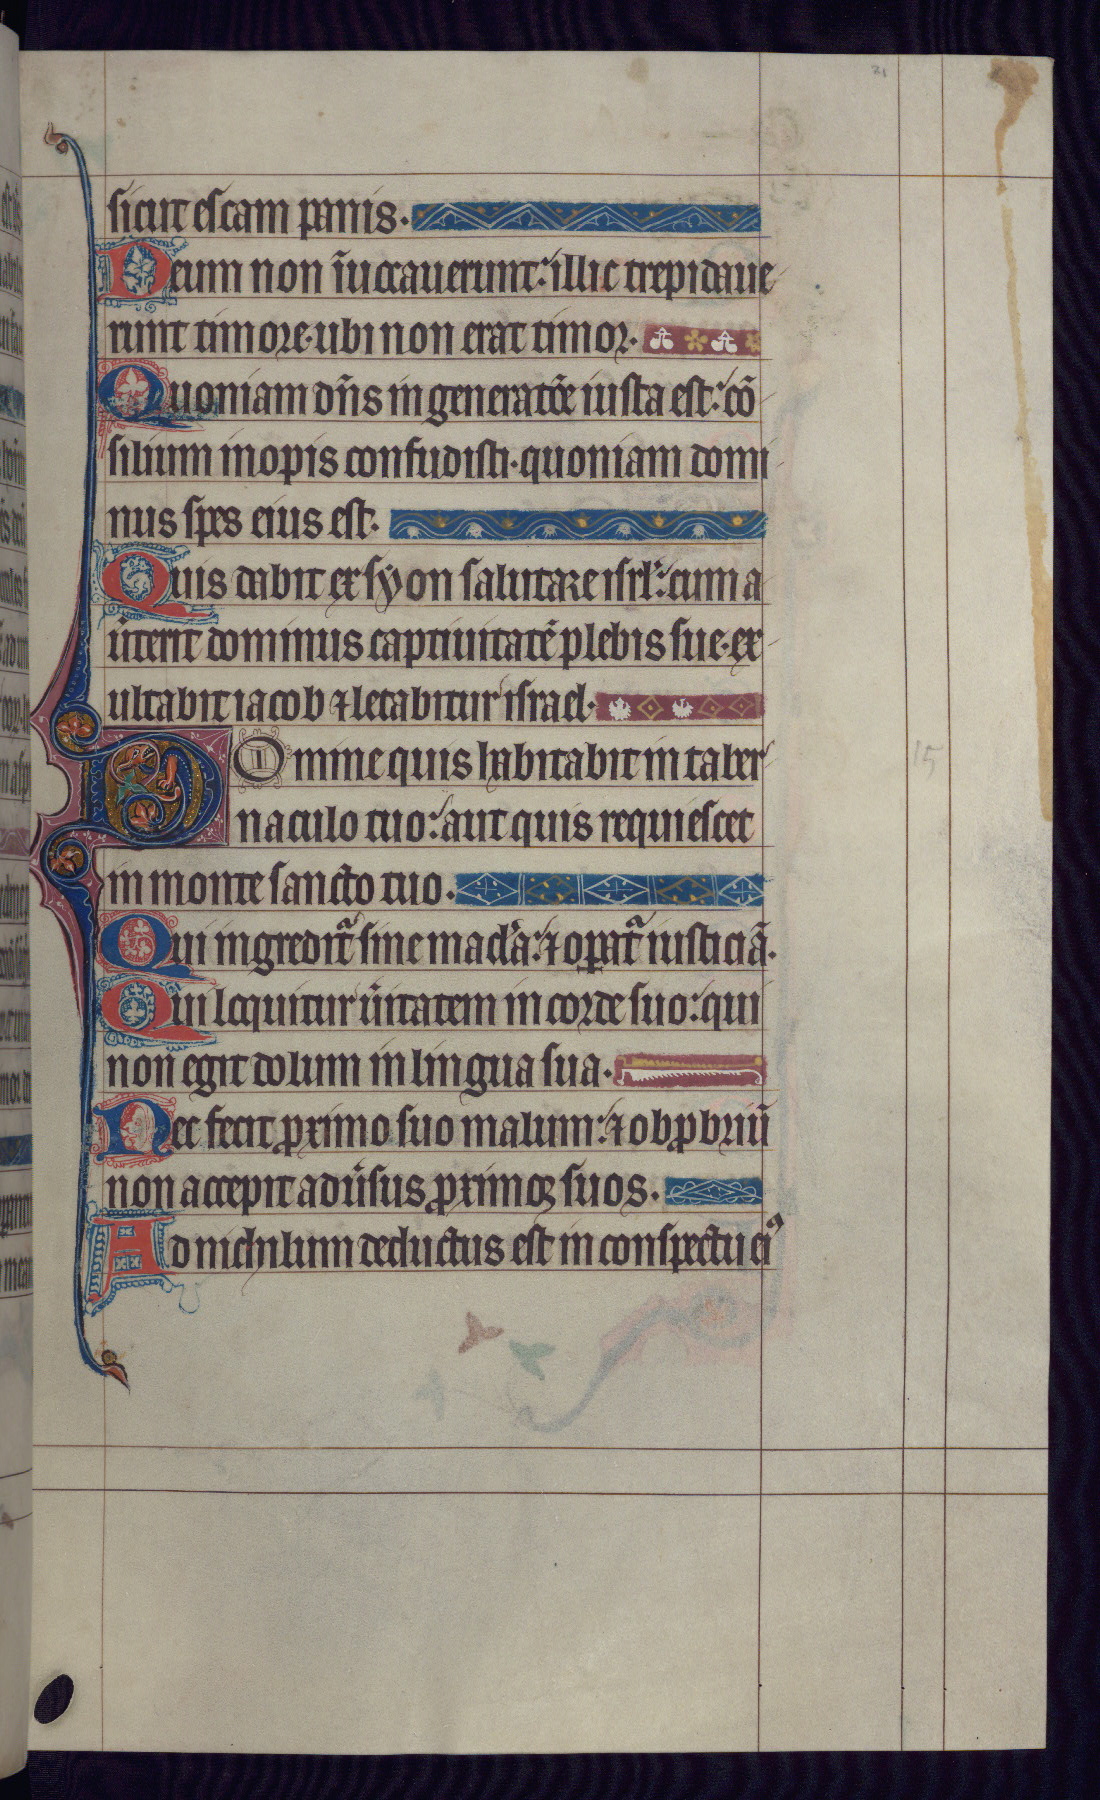 21
sicut escam panis.
Deum non īuocauerunt: illic trepidaue
runt timore. ubi non erat timor.
Quoniam dn̄s in generatōe iusta est: cō
silium inopis confudisti. quoniam domi
nus spes eius est.
Quis dabit ex syon salutare isrl̄: cum a
u̾terit dominus captiuitatē plebis sue. ex
ultabit iacob ⁊ letabitur israel.
Domine quis habitabit in taber
naculo tuo: aut quis requiescet
in monte sancto tuo.
Qui ingredit᷑ sine macl̓a: ⁊ oꝑat᷑ iusticiā.
Qui loquitur u̾itatem in corde suo: qui
non egit dolum in lingua sua.
Nec fecit ꝓximo suo malum: ⁊ obꝓbriū
non accepit aduẽsus ꝓximos suos.
Ad nichilum deductus est in conspectu eiꝰ
15